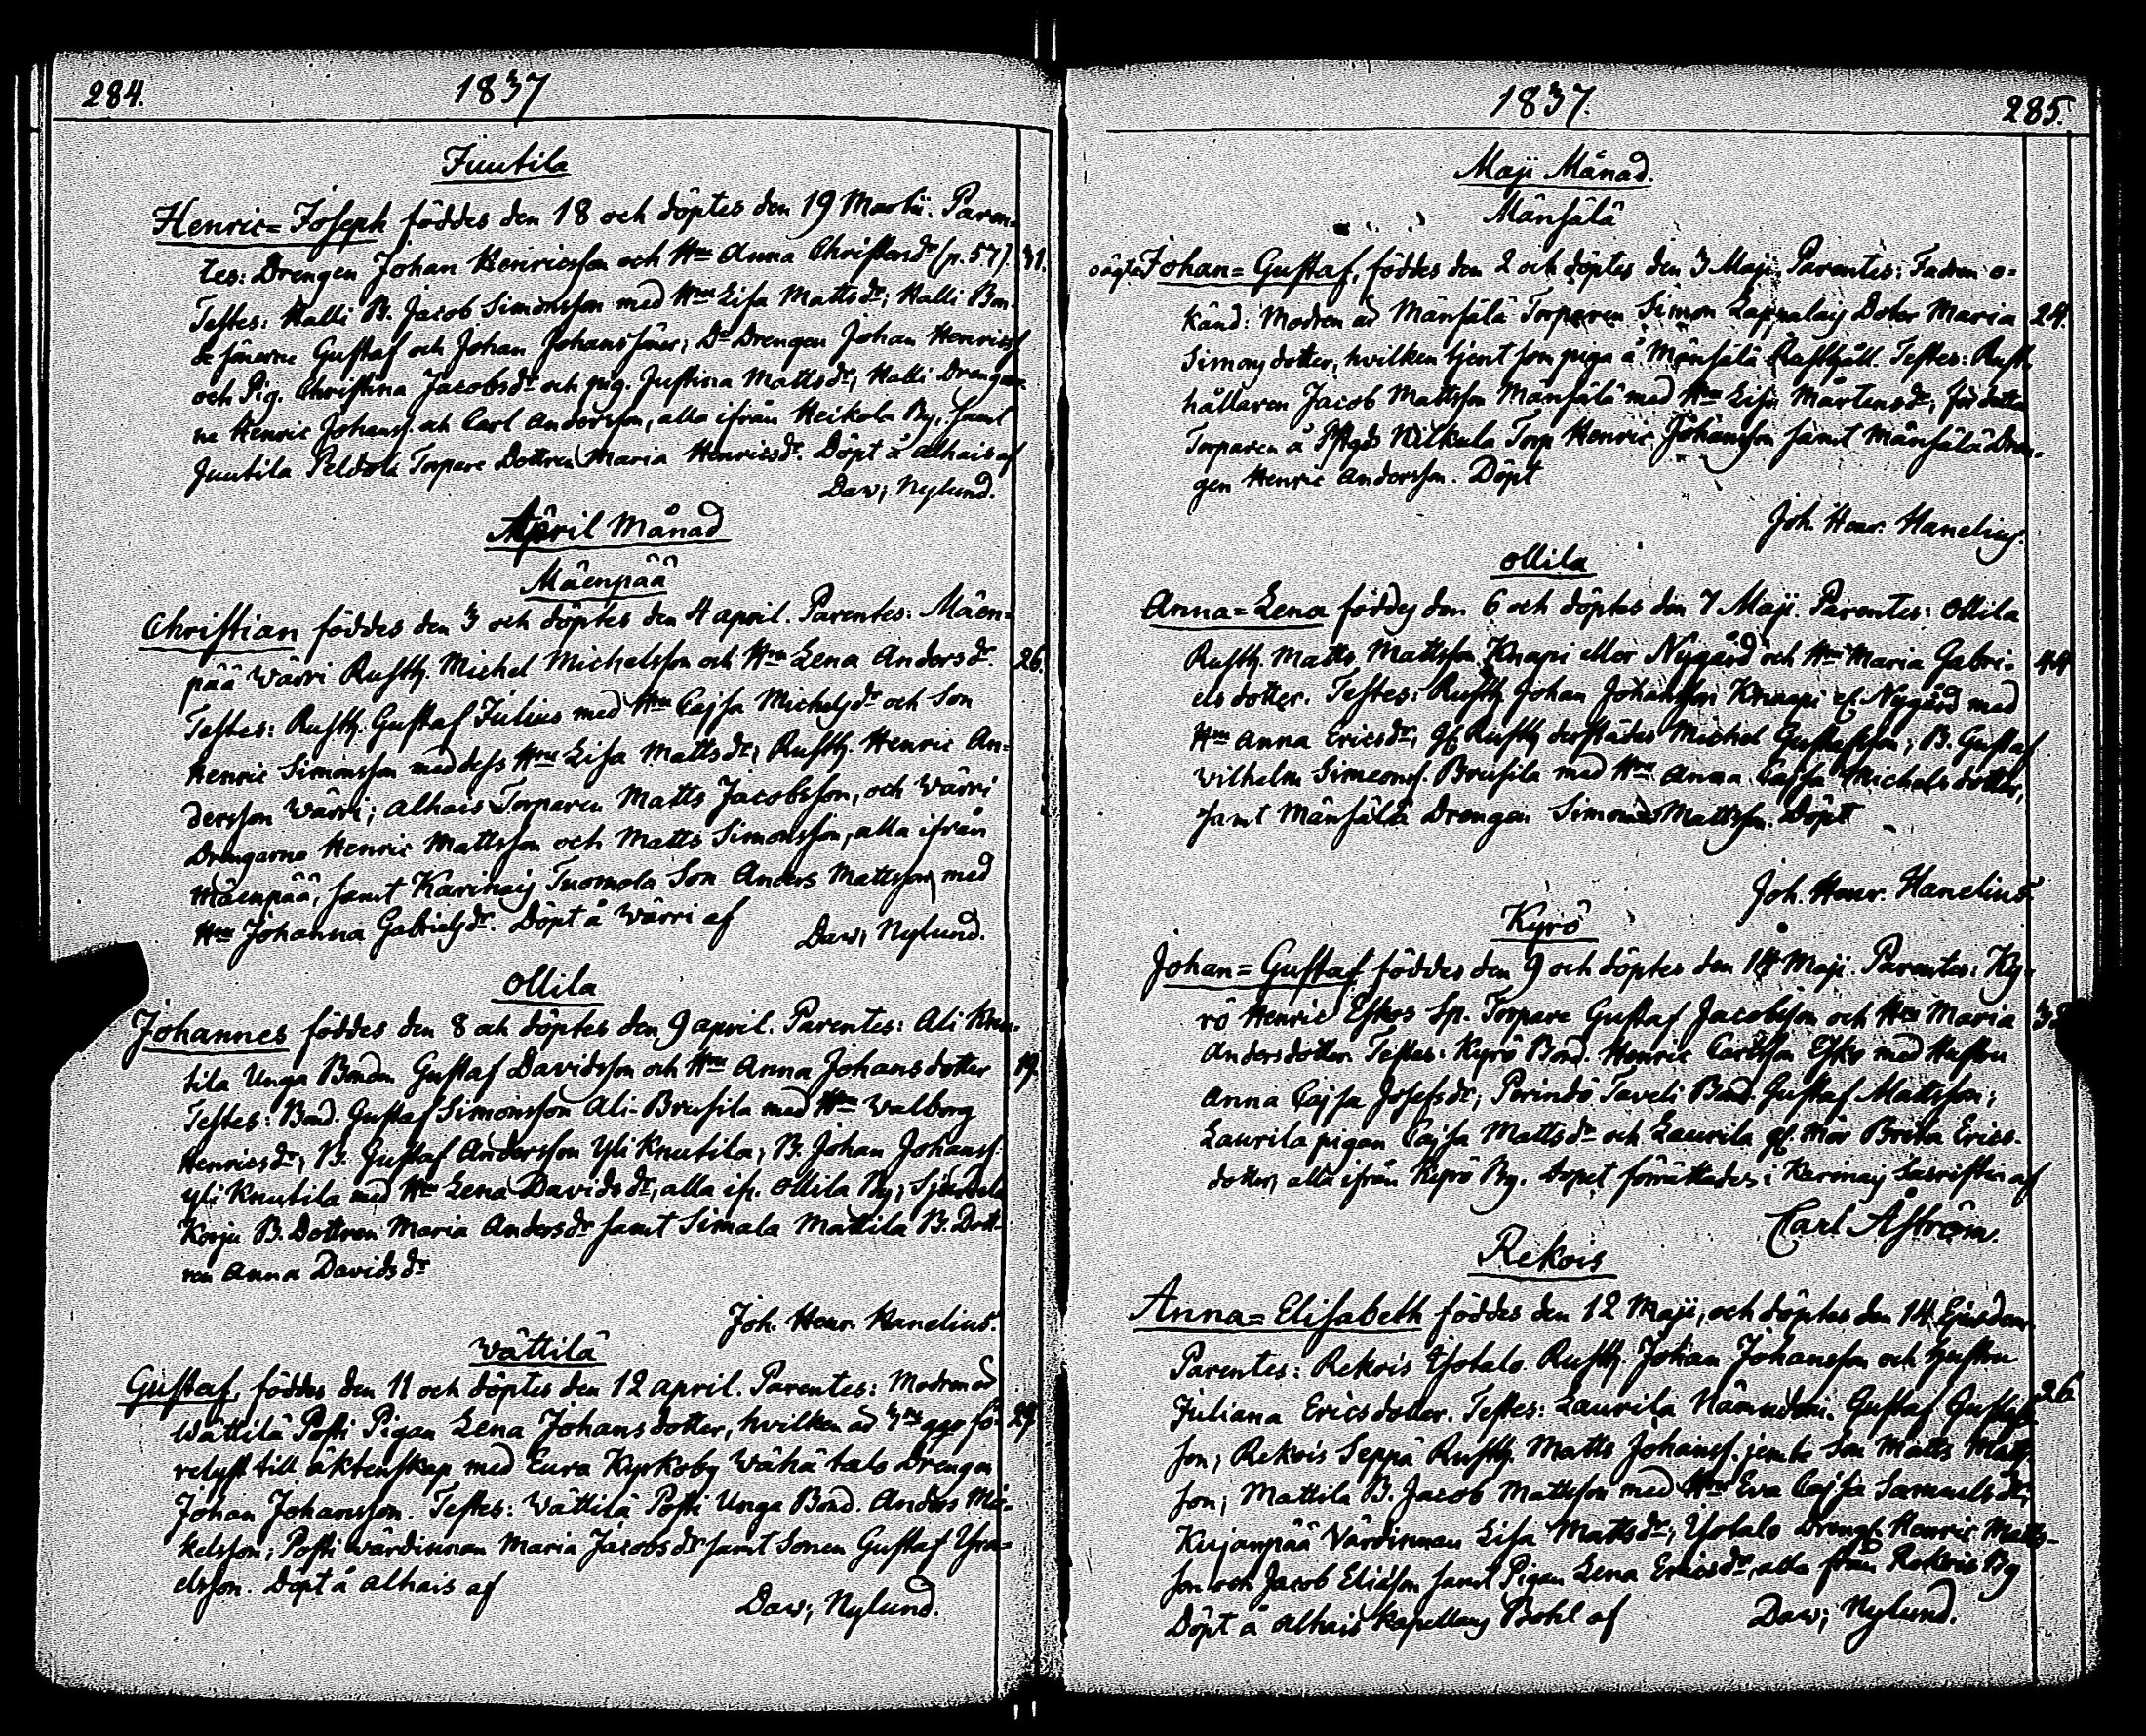 284.
1837
Juutila
Henric= Joseph föddes den 18 och döptes den 19 Martii. Paren-
tes: Drengen Johan Henricsson och Hru Anna Christiansdr (p. 57). 31.
Testes: Halli B. Jacob Simonsson med Hru Lisa Mattsdr; Halli Bon-
de sönerne Gustaf och Johan Johans söner; Do Drengen Johan Henricss
och Pig. Christina Jacobsdr och pig. Justina Mattsdr; Halli Drengar-
ne Henric Johanss. och Carl Andersson, alla ifrån Heikola By, samt
Juutila Peldola Torpare Dottren Maria Henricsdr. Döpt å Alhais af
Dav; Nylund.
April Månad
Mäenpää
Christian föddes den 3 och döptes den 4 april. Parentes: Mäen-
pää Wärri Rusth. Michel Michelsson och Hru Lena Andersdr. 26.
Testes: Rusth. Gustaf Julius med Hru Cajsa Michelsdr och Son
Henric Simonsson med dess Hru Lisa Mattsdr; Rusth. Henric An-
dersson Wärri; Alhais Torparen Matts Jacobsson, och Wärri
Drengarne Henric Mattsson och Matts Simonsson, alla ifrån
Mäenpää, samt Karinais Tuomola Son Anders Mattsson med
Hru Johanna Gabrielsdr. Döpt å Wärri af
Dav; Nylund.
Ollila
Johannes föddes den 8 och döptes den 9 april. Parentes: Ali Knu-
tila Unga Bonden Gustaf Davidsson och Hru Anna Johansdotter 19.
Testes: Bond. Gustaf Simonsson Ali-Brusila med Hru Walborg
Henricsdr; B. Gustaf Andersson Yli Knutila; B. Johan Johanss.
Yli Knutila med Hru Lena Davidsdr, alla ifr. Ollila By;
Korju B. Dottren Maria Andersdr samt Simala Mattila B. Dott-
ren Anna Davidsdr
Joh. Henr. Hanelius.
Wättilä
Gustaf, föddes den 11 och döptes den 12 april. Parentes: Modren är
Wättilä Posti Pigan Lena Johansdotter, hvilken är 3ne ggr fö- 29.
relyst till äktenskap med Eura Kyrkoby Wähä talo Drengen
Johan Johansson. Testes: Wättilä Posti Unga Bond. Anders Mi-
kelsson; Posti Wärdinnan Maria Jacobsdr samt Sonen Gustaf Isra-
elsson. Döpt å Alhais af
Dav; Nylund.
1837.
285.
Maji Månad.
Mänsälä
oägta Johan= Gustaf, föddes den 2 och döptes den 3 Maji. Parentes: Fadren o-
känd: Modren är Mänsälä Torparen Simon Lappalais Doter Maria 24.
Simonsdotter, hvilken tjent som piga å Mänsälä Rusthåll. Testes: Rust-
hållaren Jacob Mattsson Mänsälä med Hru Lisa Mårtensdr; för detta
Torparen å Torp Henric Johansson samt Mänsälä Dren-
gen Henric Andersson. Döpt
Joh. Henr. Hanelius.
Ollila
Anna=Lena föddes den 6 och döptes den 7 Maji. Parentes: Ollila
Rusth. Matts Mattsson Knapi eller Nygård och Hru Maria Gabri- 44
elsdotter. Testes: Rusth. Johan Johansson Knaapi el. Nygård med
Hru Anna Ericsdr; Gl. Rusth derstädes Michel Gustafsson; B. Gustaf
Wilhelm Simeonss. Brusila med Hru Anna Cajsa Michelsdotter,
samt Mänsälä Drengen Simon Mattsson. Döpt
Joh. Henr. Hanelius.
Kyrö
Johan= Gustaf föddes den 9 och döptes den 14 Maji. Parentes: Ky-
rö Henric Eskos Sp. Torpare Gustaf Jacobsson och Hru Maria
Andersdotter. Testes: Kyrö Bond. Henric Carlsson Esko med Hustru
Anna Cajsa Josefsdr; Pervindö Taveli Bond. Gustaf Mattsson;
Laurila pigan Cajsa Mattsdr och Laurila gl. Mor Brita Erics-
dotter, alla ifrån Kyrö By. Dopet förrättades i Karinais Sacristian af
Carl Åström.
Rekois
Anna= Elisabeth föddes den 12 Maji, och döptes den 14 Ejusdem
Parentes: Rekois Isotalo Rusth. Johan Johansson och Hustru
Juliana Ericsdotter. Testes: Laurila Nämndem. Gustaf Gustafs- 26
son; Rekois Seppä Rusth. Matts Johanss. jemte Son Matts Matts-
son; Mattila B. Jacob Mattsson med Hru Eva Cajsa Samuelsdr;
Kujanpää Värdinnan Lisa Mattsdr; Isotalo Drengr. Henric Matts-
son och Jacob Eliasson samt Pigan Lena Ericsdr, alla från Rekois By
Döpt å Alhais Kapellans Bohl af
Dav; Nylund.